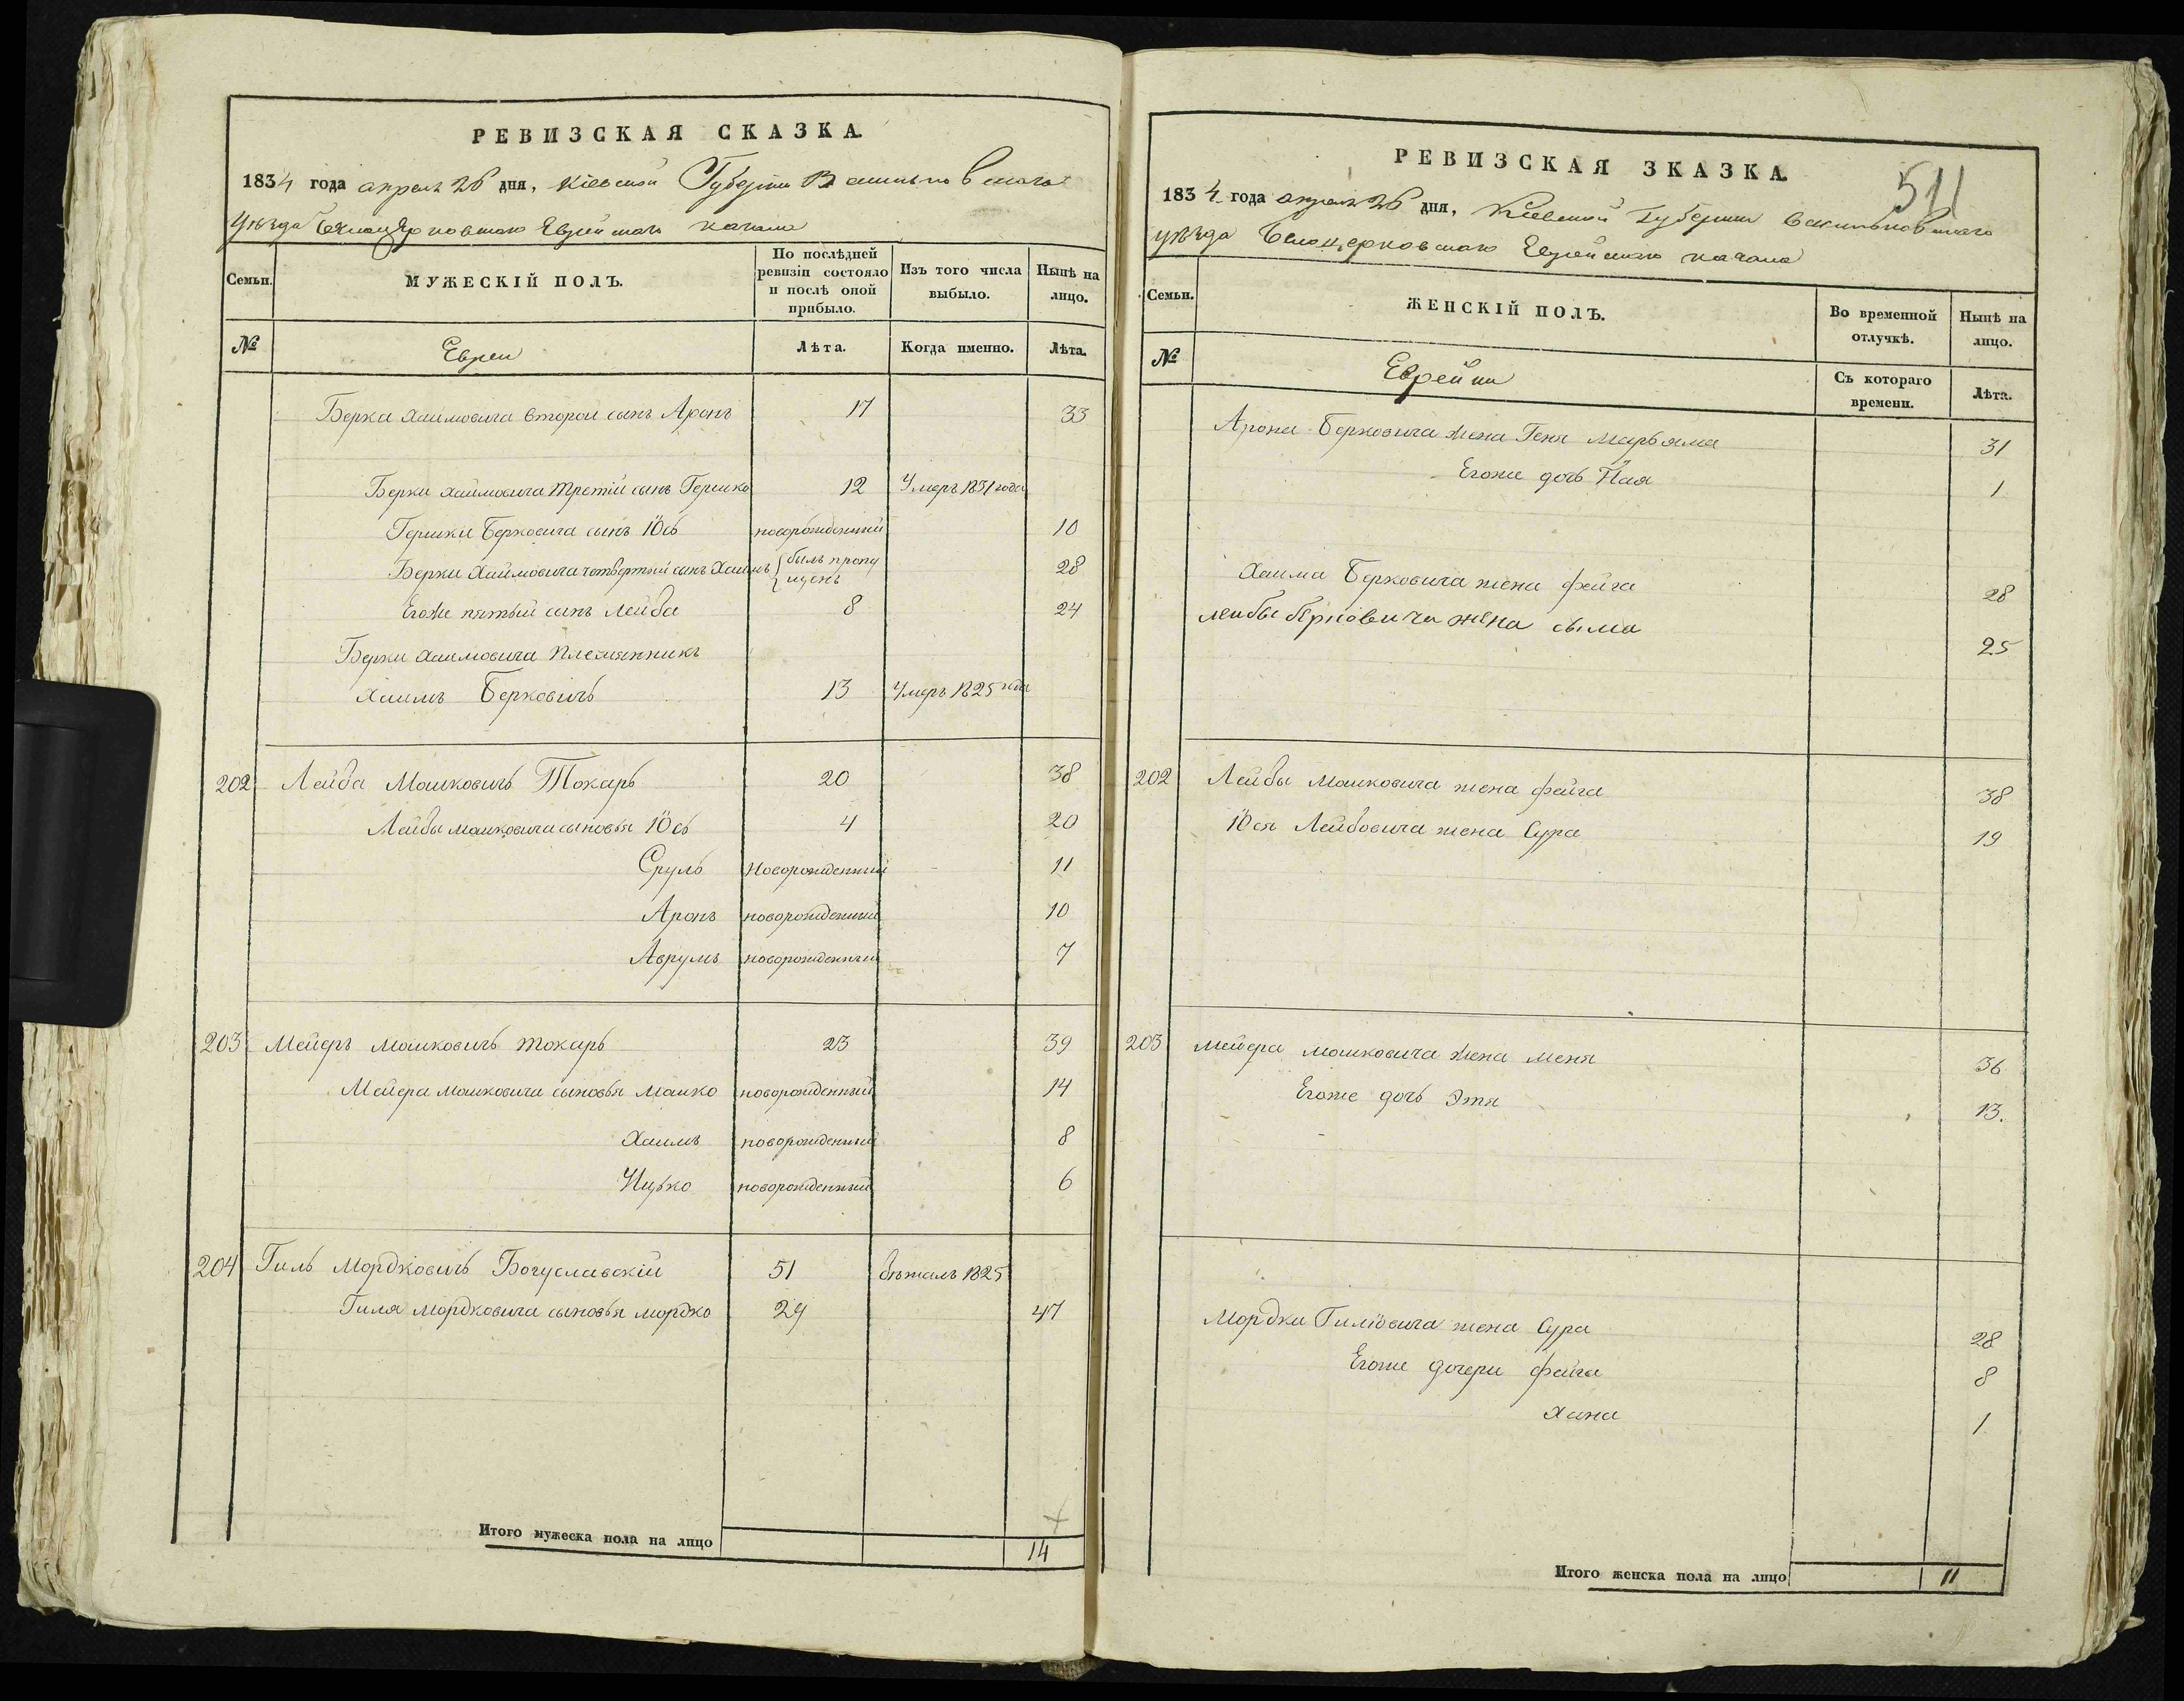 РЕВИЗСКАЯ СКАЗКА.
1834 года апреля 26 дня, Кіевской Губерніи Васильковскаго
уѣзда Белоцерковскаго Еврейскаго кагала
Семьи. МУЖЕСКІЙ ПОЛЪ. По послѣдней ревизіи состояло и послѣ оной прибыло. Изъ того числа выбыло. Нынѣ на лицо.
№ Евреи Лѣта. Когда именно. Лѣта.
Берка Хаимовича второй сынъ Аронъ 17 33
Берки Хаимовича третій сынъ Гершко 12 Умеръ 1831 года
Гершки Берковича сынъ Іось новорожденный 10
Берки Хаимовича четвертый сынъ Хаимъ былъ пропущенъ 28
Егоже пятый сынъ Лейба 8 24
Берки Хаимовича племянникъ
Хаимъ Берковичъ 13 Умеръ 1825 года
202 Лейба Мошковичъ Токарь 20 38
Лейбы Мошковича сыновья Іось 4 20
Сруль Новорожденный 11
Аронъ новорожденный 10
Аврумъ новорожденный 7
203 Мейеръ Мошковичъ Токарь 23 39
Мейера Мошковича сыновья Мошко новорожденный 14
Хаимъ новорожденный 8
Ицько новорожденный 6
204 Гиль Мордковичъ Богуславскій 51 бѣжалъ 1825
Гиля Мордковича сыновья Мордко 29 47
Итого мужеска пола на лицо 14
511
РЕВИЗСКАЯ ЗКАЗКА.
1834 года апреля 26 дня, Кіевской Губерніи Васильковскаго
уѣзда Белоцерковскаго Еврейскаго кагала
Семьи. ЖЕНСКІЙ ПОЛЪ. Во временной отлучкѣ. Нынѣ на лицо.
№ Еврейки Съ котораго времени. Лѣта.
Арона Берковича жена Геня Марьяма 31
Егоже дочь 1
Хаима Берковича жена Фейга 28
Лейбы Берковича жена Сыма 25
202 Лейбы Мошковича жена Фейга 38
Іося Лейбовича жена Сура 19
203 Мейера Мошковича жена Меня 36
Егоже дочь Этя 13.
Мордки Гиліовича жена Сура 28
Егоже дочери Фейга 8
Хана 1
Итого женска пола на лицо 11